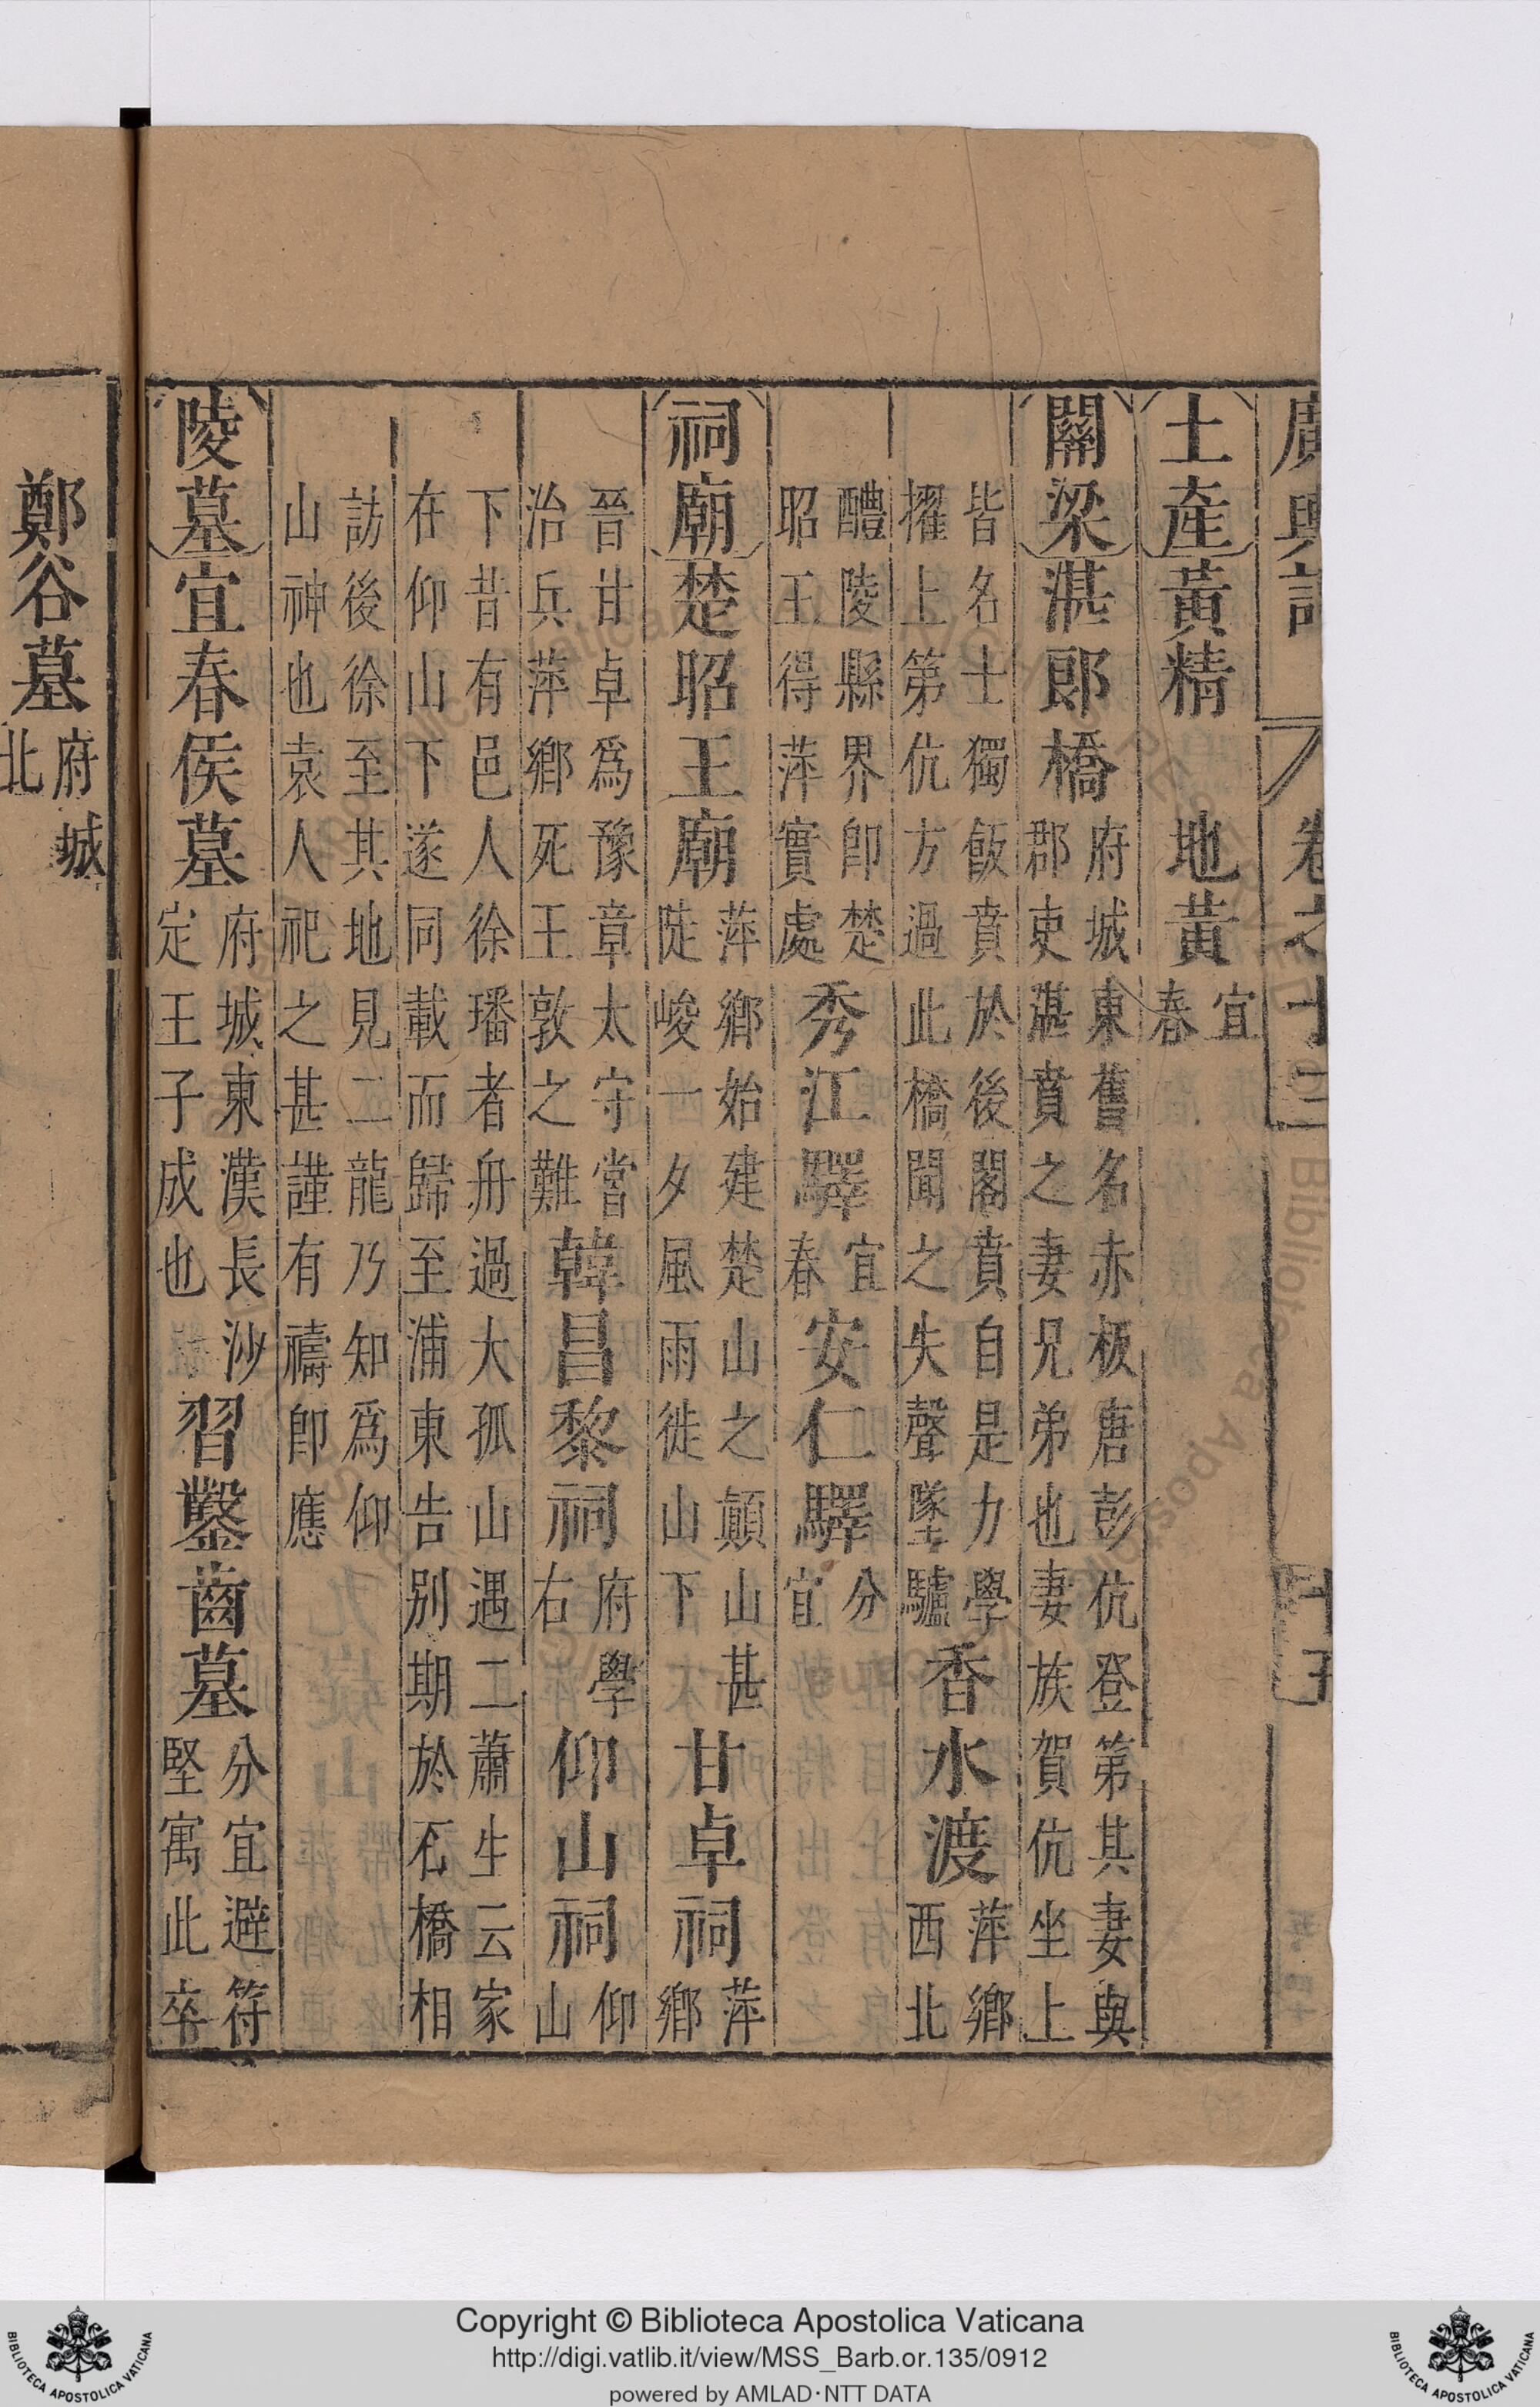 廣輿記 卷之十三 十五
土產 黃精 地黃 宜春
關梁 湛郎橋 府城東舊名赤板唐彭伉登第其妻與郡吏湛賁之妻兄弟也妻族賀伉坐上
皆名士獨飯賁於後閣賁自是力學擢上第伉方過此橋聞之失聲墜驢 香水渡 萍鄉西北
醴陵縣界卽楚昭王得萍實處 秀江驛 宜春 安仁驛 分宜
祠廟 楚昭王廟 萍鄉始建楚山之顛山甚陡峻一夕風雨徙山下 甘卓祠 萍鄉
晉甘卓爲豫章太守當治兵萍鄉死王敦之難 韓昌黎祠 府學右 仰山祠 仰山
下昔有邑人徐璠者舟過大孤山遇二蕭生云家在仰山下遂同載而歸至浦東告別期於石橋相
訪後徐至其地見二龍乃知爲仰山神也袁人祀之甚謹有禱卽應
陵墓 宜春侯墓 府城東漢長沙定王子成也 習鑿齒墓 分宜避符堅寓此卒
鄭谷墓 府城北
Copyright © Biblioteca Apostolica Vaticana
http://digi.vatlib.it/view/MSS_Barb.or.135/0912
powered by AMLAD·NTT DATA
BIBLIOTECA APOSTOLICA VATICANA
BIBLIOTECA APOSTOLICA VATICANA